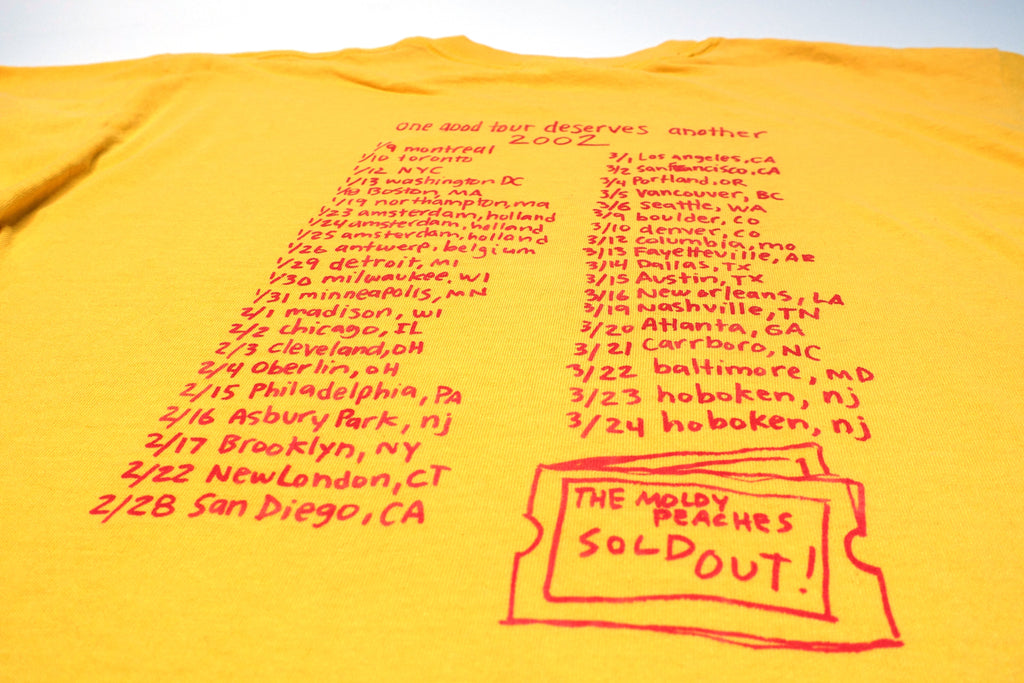 one good tour deserves another
2002
1/9 montreal
1/10 toronto
1/12 NYC
1/13 washington DC
1/18 Boston, MA
1/19 northampton, ma
1/23 amsterdam, holland
1/24 amsterdam, holland
1/25 amsterdam, holland
1/26 antwerp, belgium
1/29 detroit, MI
1/30 milwaukee, WI
1/31 minneapolis, MN
2/1 madison, WI
2/2 chicago, IL
2/3 cleveland, OH
2/4 Oberlin, OH
2/15 Philadelphia, PA
2/16 Asbury Park, nj
2/17 Brooklyn, NY
2/22 New London, CT
2/28 San Diego, CA
3/1 Los angeles, CA
3/2 sanfrancisco, CA
3/4 Portland, OR
3/5 Vancouver, BC
3/6 seattle, WA
3/9 boulder, CO
3/10 denver, CO
3/12 columbia, mo
3/13 Fayetteville, AR
3/14 Dallas, TX
3/15 Austin, TX
3/16 New orleans, LA
3/19 Nashville, TN
3/20 Atlanta, GA
3/21 Carrboro, NC
3/22 baltimore, MD
3/23 hoboken, nj
3/24 hoboken, nj
THE MOLDY
PEACHES
SOLD OUT!